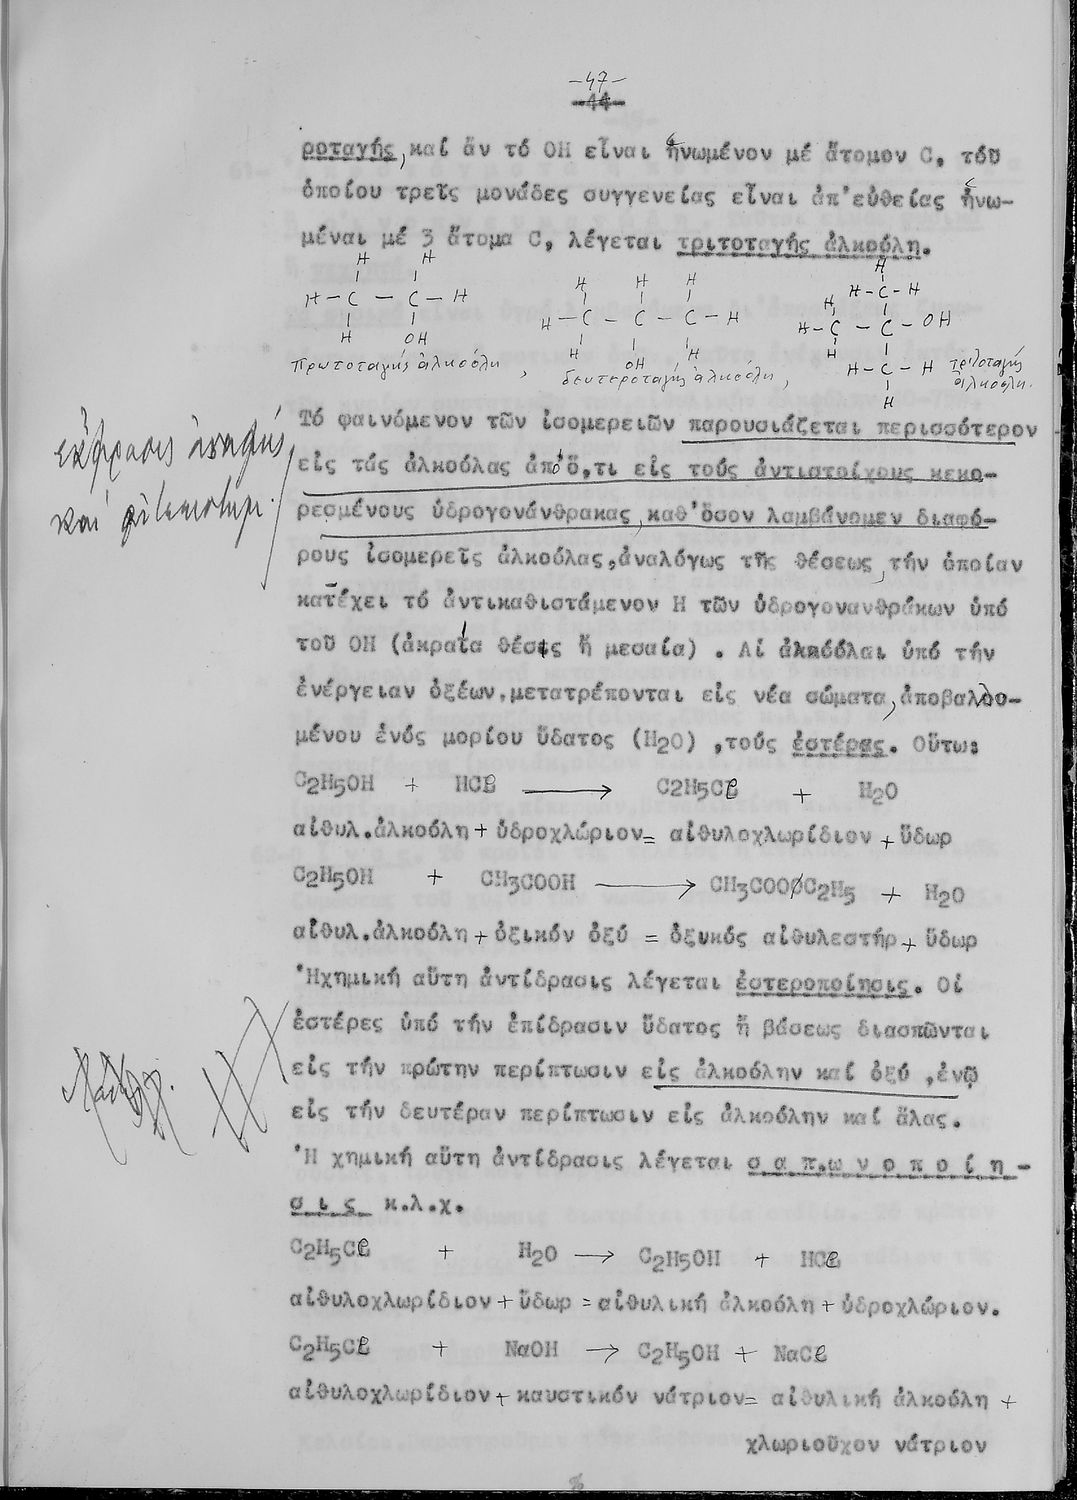 -47-
-44-
ροταγής, καί ἄν τό ΟΗ εἶναι ἡνωμένον μέ ἄτομον C, τόῦ
ὁποίου τρεῖς μονάδες συγγενείας εἶναι ἀπ'εὐθείας ἡνω-
μέναι μέ 3 ἄτομα C, λέγεται τριτοταγής ἀλκοόλη.
H H
H - C - C - H
H OH
πρωτοταγής ἀλκοόλη,
H H H
H - C - C - C - H
H OH H
δευτεροταγής ἀλκοόλη,
H
H - C - H
H
H - C - C - OH
H
H - C - H
H
τριτοταγής
ἀλκοόλη.
Τό φαινόμενον τῶν ἰσομερειῶν παρουσιάζεται περισσότερον
εἰς τάς ἀλκοόλας ἀπό ὅ,τι εἰς τούς ἀντιστοίχους κεκο-
ρεσμένους ὑδρογονάνθρακας, καθ'ὅσον λαμβάνομεν διαφό-
ρους ἰσομερεῖς ἀλκοόλας, ἀναλόγως τῆς θέσεως, τήν ὁποίαν
κατέχει τό ἀντικαθιστάμενον Η τῶν ὑδρογονανθράκων ὑπό
τοῦ ΟΗ (ἀκραία θέσις ἤ μεσαία) . Αἱ ἀλκοόλαι ὑπό τήν
ἐνέργειαν ὀξέων, μετατρέπονται εἰς νέα σώματα, ἀποβαλλο-
μένου ἑνός μορίου ὕδατος (H2O) ,τούς ἐστέρας. Οὕτω:
C2H5OH + HCl → C2H5Cl + H2O
αἰθυλ.ἀλκοόλη + ὑδροχλώριον = αἰθυλοχλωρίδιον + ὕδωρ
C2H5OH + CH3COOH → CH3COOC2H5 + H2O
αἰθυλ.ἀλκοόλη + ὀξικόν ὀξύ = ὀξικός αἰθυλεστήρ + ὕδωρ
Ἡχημική αὕτη ἀντίδρασις λέγεται ἐστεροποίησις. Οἱ
ἐστέρες ὑπό τήν ἐπίδρασιν ὕδατος ἤ βάσεως διασπῶνται
εἰς τήν πρώτην περίπτωσιν εἰς ἀλκοόλην καί ὀξύ ,ἐνῷ
εἰς τήν δευτέραν περίπτωσιν εἰς ἀλκοόλην καί ἅλας.
Ἡ χημική αὕτη ἀντίδρασις λέγεται σ α π ω ν ο π ο ί η -
σ ι ς κ.λ.χ.
C2H5Cl + H2O → C2H5OH + HCl
αἰθυλοχλωρίδιον + ὕδωρ = αἰθυλική ἀλκοόλη + ὑδροχλώριον.
C2H5Cl + NaOH → C2H5OH + NaCl
αἰθυλοχλωρίδιον + καυστικόν νάτριον = αἰθυλική ἀλκοόλη +
χλωριοῦχον νάτριον